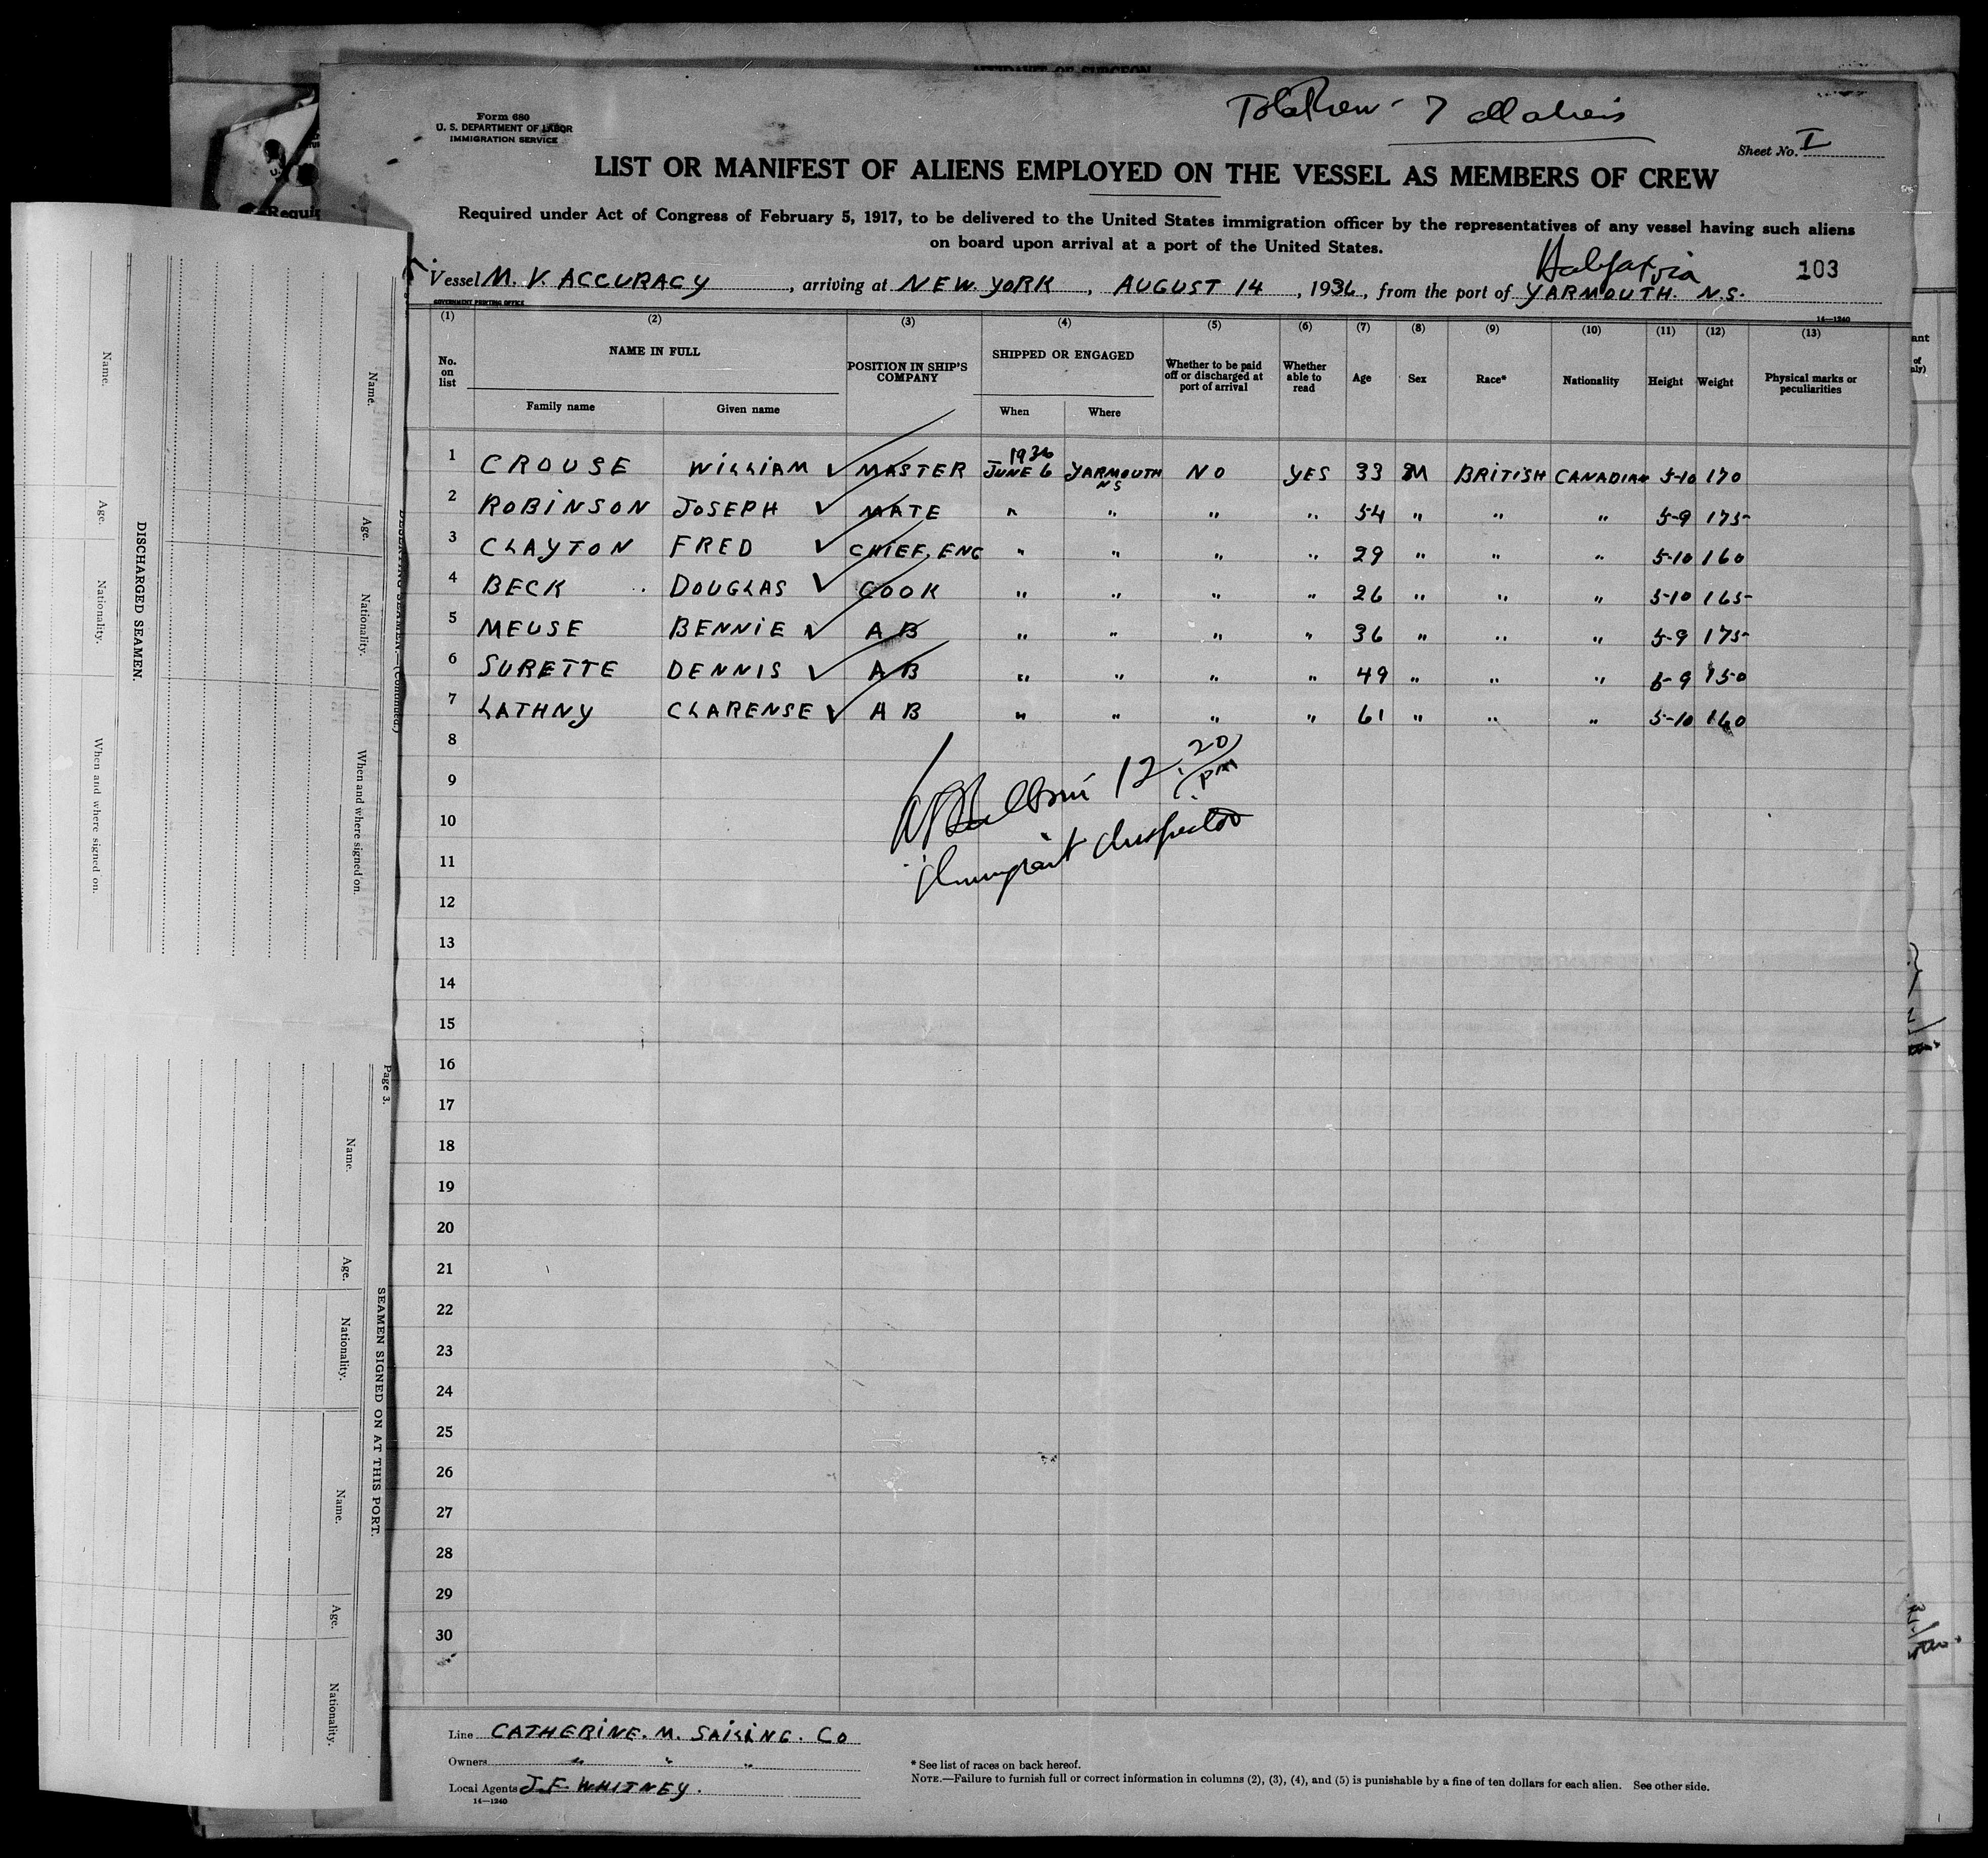 AFFIDAVIT OF SURGEON
Form 680
U. S. DEPARTMENT OF LABOR
IMMIGRATION SERVICE
7 all aliens
Sheet No. I
LIST OR MANIFEST OF ALIENS EMPLOYED ON THE VESSEL AS MEMBERS OF CREW
Required under Act of Congress of February 5, 1917, to be delivered to the United States immigration officer by the representatives of any vessel having such aliens
on board upon arrival at a port of the United States.
Halifax via
103
Vessel M. V. ACCURACY, arriving at NEW YORK, AUGUST 14, 1936, from the port of YARMOUTH. N.S.
GOVERNMENT PRINTING OFFICE
14—1240
(1) (2) (3) (4) (5) (6) (7) (8) (9) (10) (11) (12) (13)
No. on list NAME IN FULL POSITION IN SHIP'S COMPANY SHIPPED OR ENGAGED Whether to be paid off or discharged at port of arrival Whether able to read Age Sex Race* Nationality Height Weight Physical marks or peculiarities
Family name Given name When Where
1 CROUSE WILLIAM ✓ MASTER 1936 JUNE 6 YARMOUTH NS NO YES 33 M BRITISH CANADIAN 5-10 170
2 ROBINSON JOSEPH ✓ MATE " " " " 54 " " " 5-9 175
3 CLAYTON FRED ✓ CHIEF. ENG " " " " 29 " " " 5-10 160
4 BECK DOUGLAS ✓ COOK " " " " 26 " " " 5-10 165
5 MEUSE BENNIE ✓ AB " " " " 36 " " " 5-9 175
6 SURETTE DENNIS ✓ AB " " " " 49 " " " 5-9 150
7 LATHNY CLARENSE ✓ AB " " " " 61 " " " 5-10 160
8
9
10
11
12
13
14
15
16
17
18
19
20
21
22
23
24
25
26
27
28
29
30
12.20 pm
Immigrant Inspector
Line CATHERINE. M. SAILING. CO
Owners " " "
Local Agents J. F. WHITNEY.
14—1240
* See list of races on back hereof.
NOTE.—Failure to furnish full or correct information in columns (2), (3), (4), and (5) is punishable by a fine of ten dollars for each alien. See other side.
DESERTING SEAMEN.—(Continued.)
Name. Age. Nationality. When and where signed on.
DISCHARGED SEAMEN.
Name. Age. Nationality. When and where signed on.
Page 3.
SEAMEN SIGNED ON AT THIS PORT.
Name. Age. Nationality. Name. Age. Nationality.